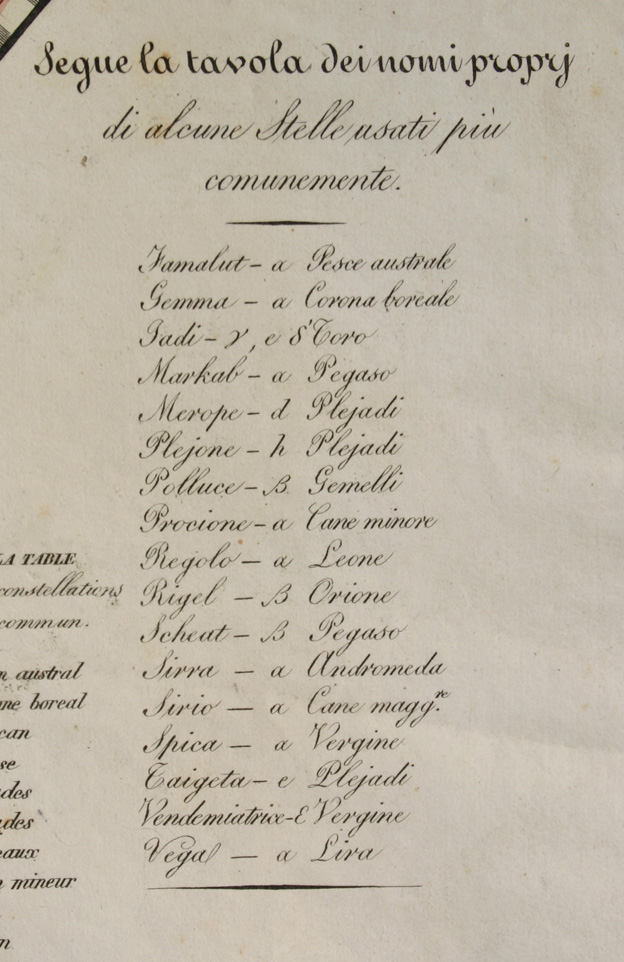 Segue la tavola dei nomi proprj
di alcune Stelle usati più
comunemente.
Famalut - α Pesce australe
Gemma - α Corona boreale
Jadi - γ, e δ Toro
Markab - α Pegaso
Merope - d Plejadi
Plejone - h Plejadi
Polluce - β Gemelli
Procione - α Cane minore
Regolo - α Leone
Rigel - β Orione
Scheat - β Pegaso
Sirra - α Andromeda
Sirio - α Cane magg.re
Spica - α Vergine
Taigeta - e Plejadi
Vendemiatrice - ε Vergine
Vega - α Lira
LA TABLE
constellations
commun.
n austral
ne boreal
can
se
des
ades
eaux
n mineur
n